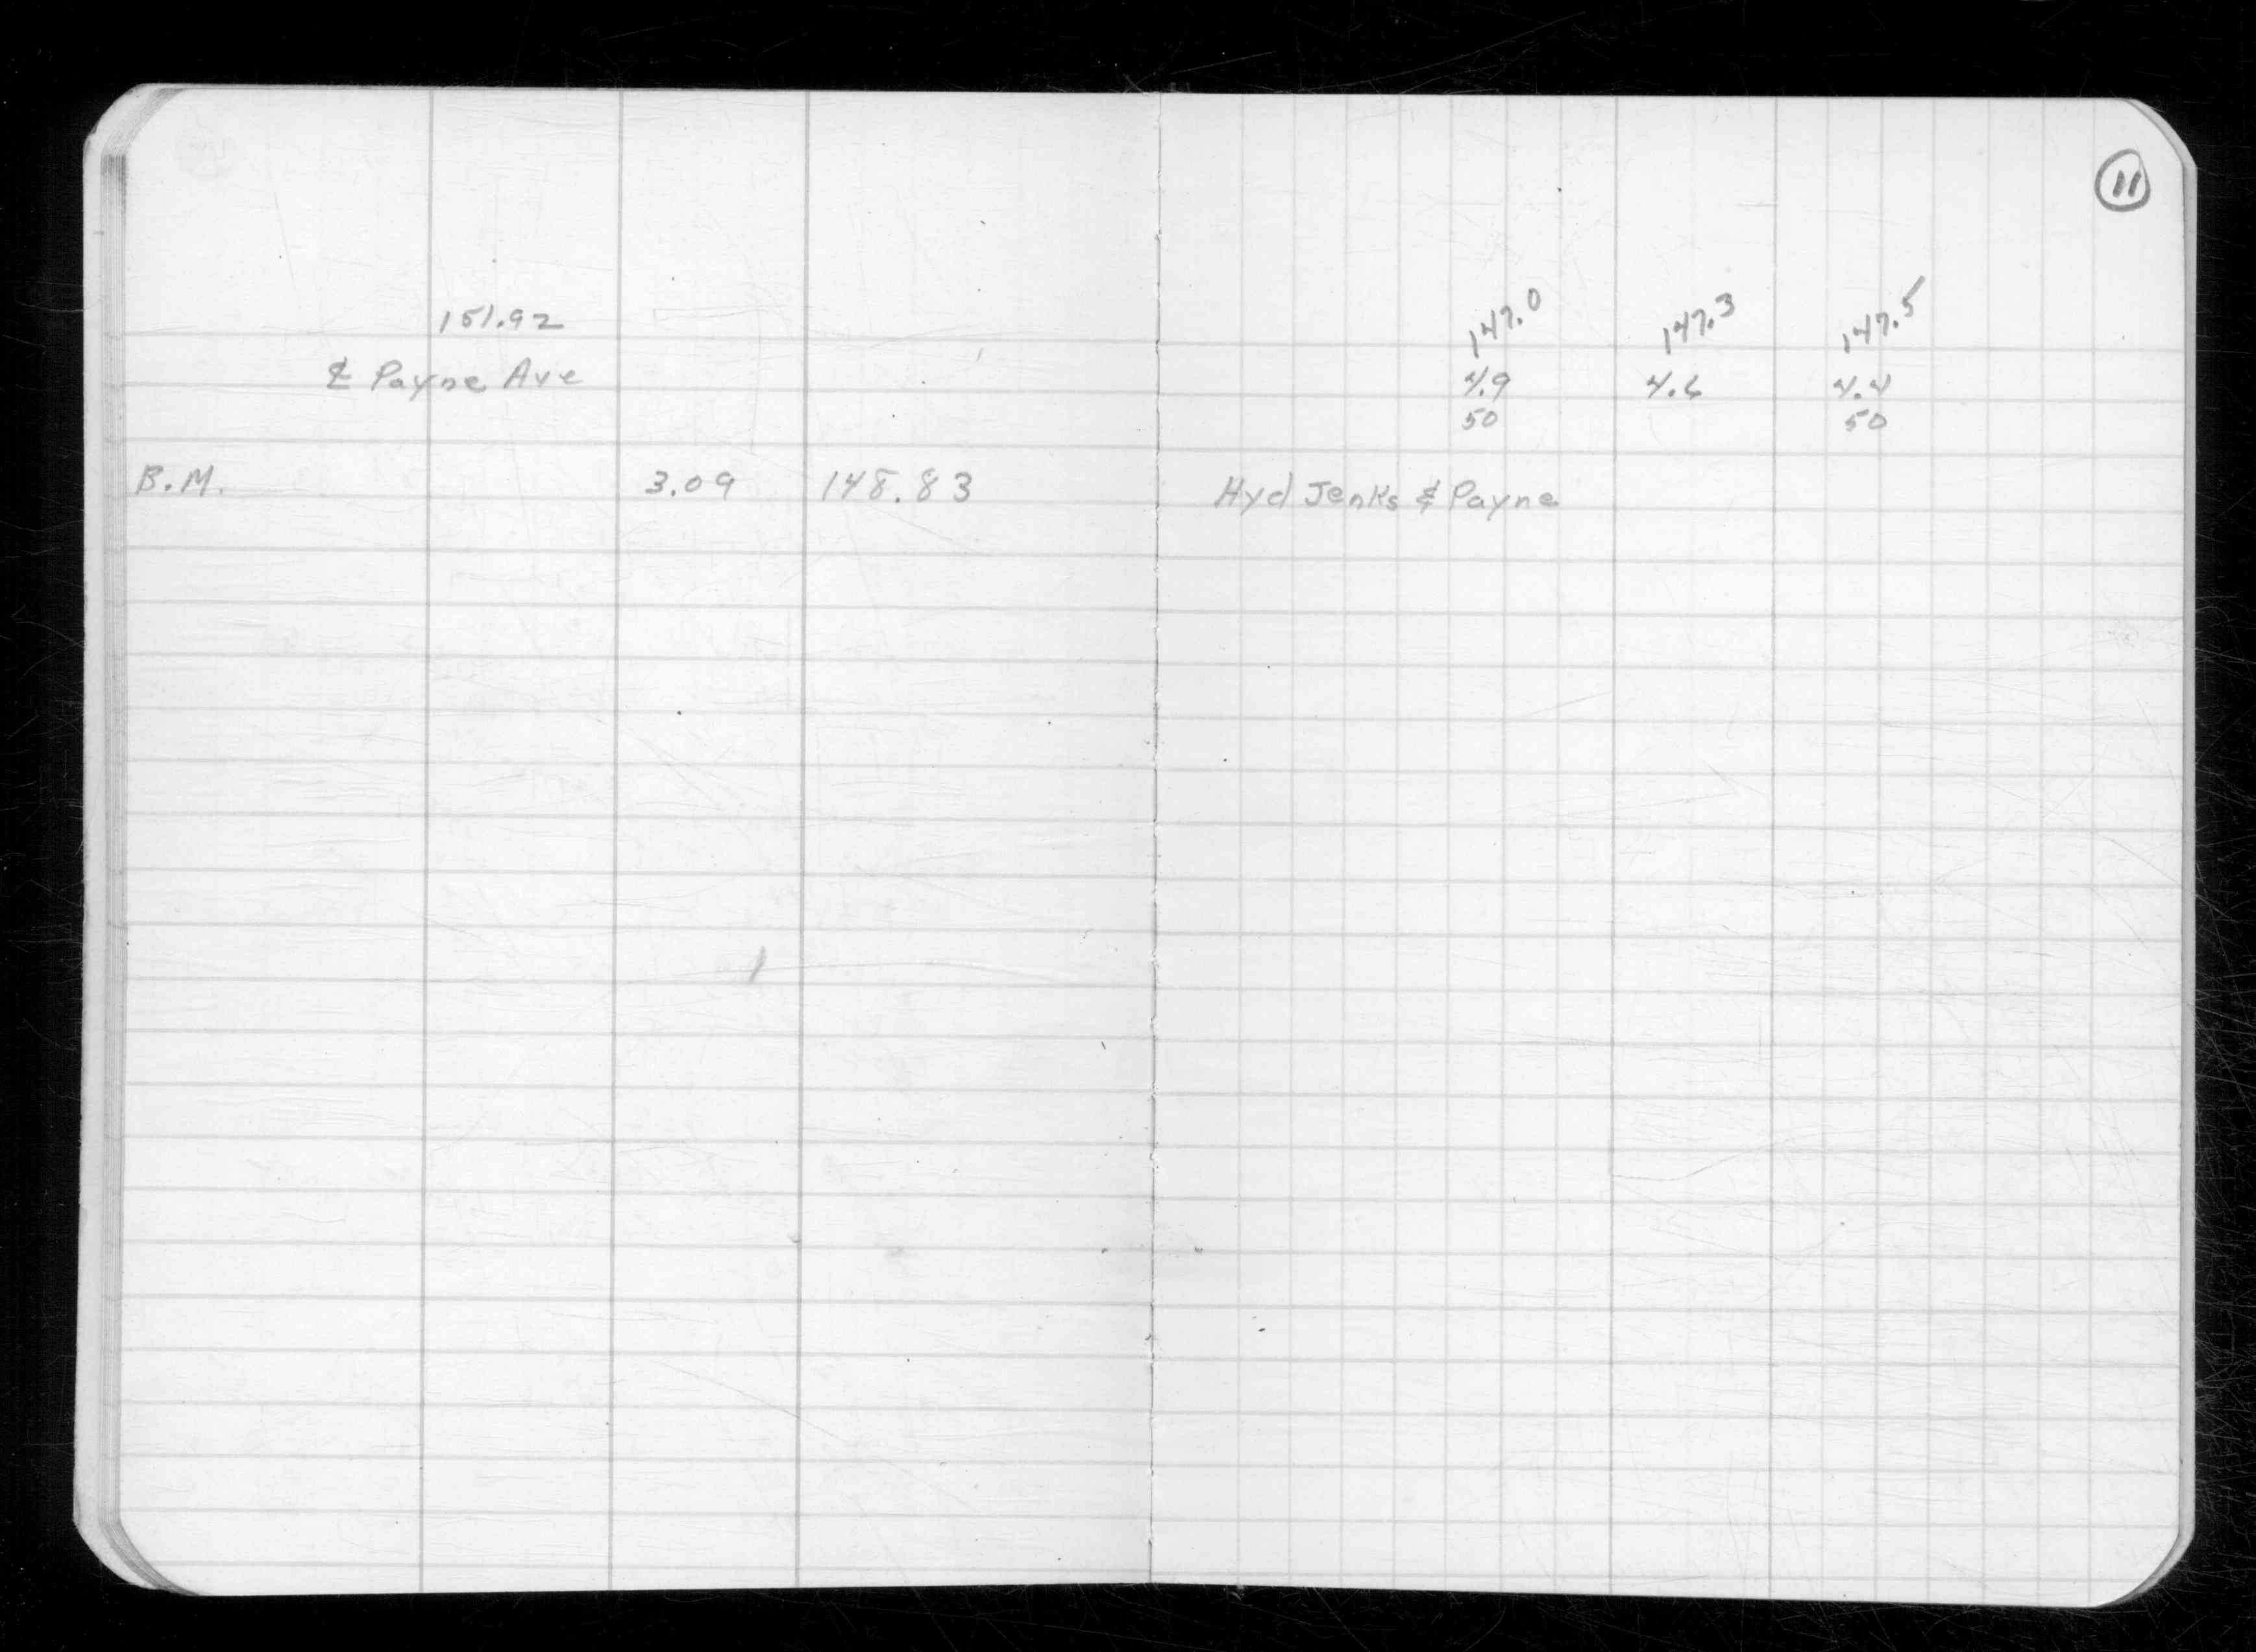 11
151.92 147.0 147.3 147.5
℄ Payne Ave 4.9 4.6 4.4
50 50
B.M. 3.09 148.83 Hyd Jenks & Payne